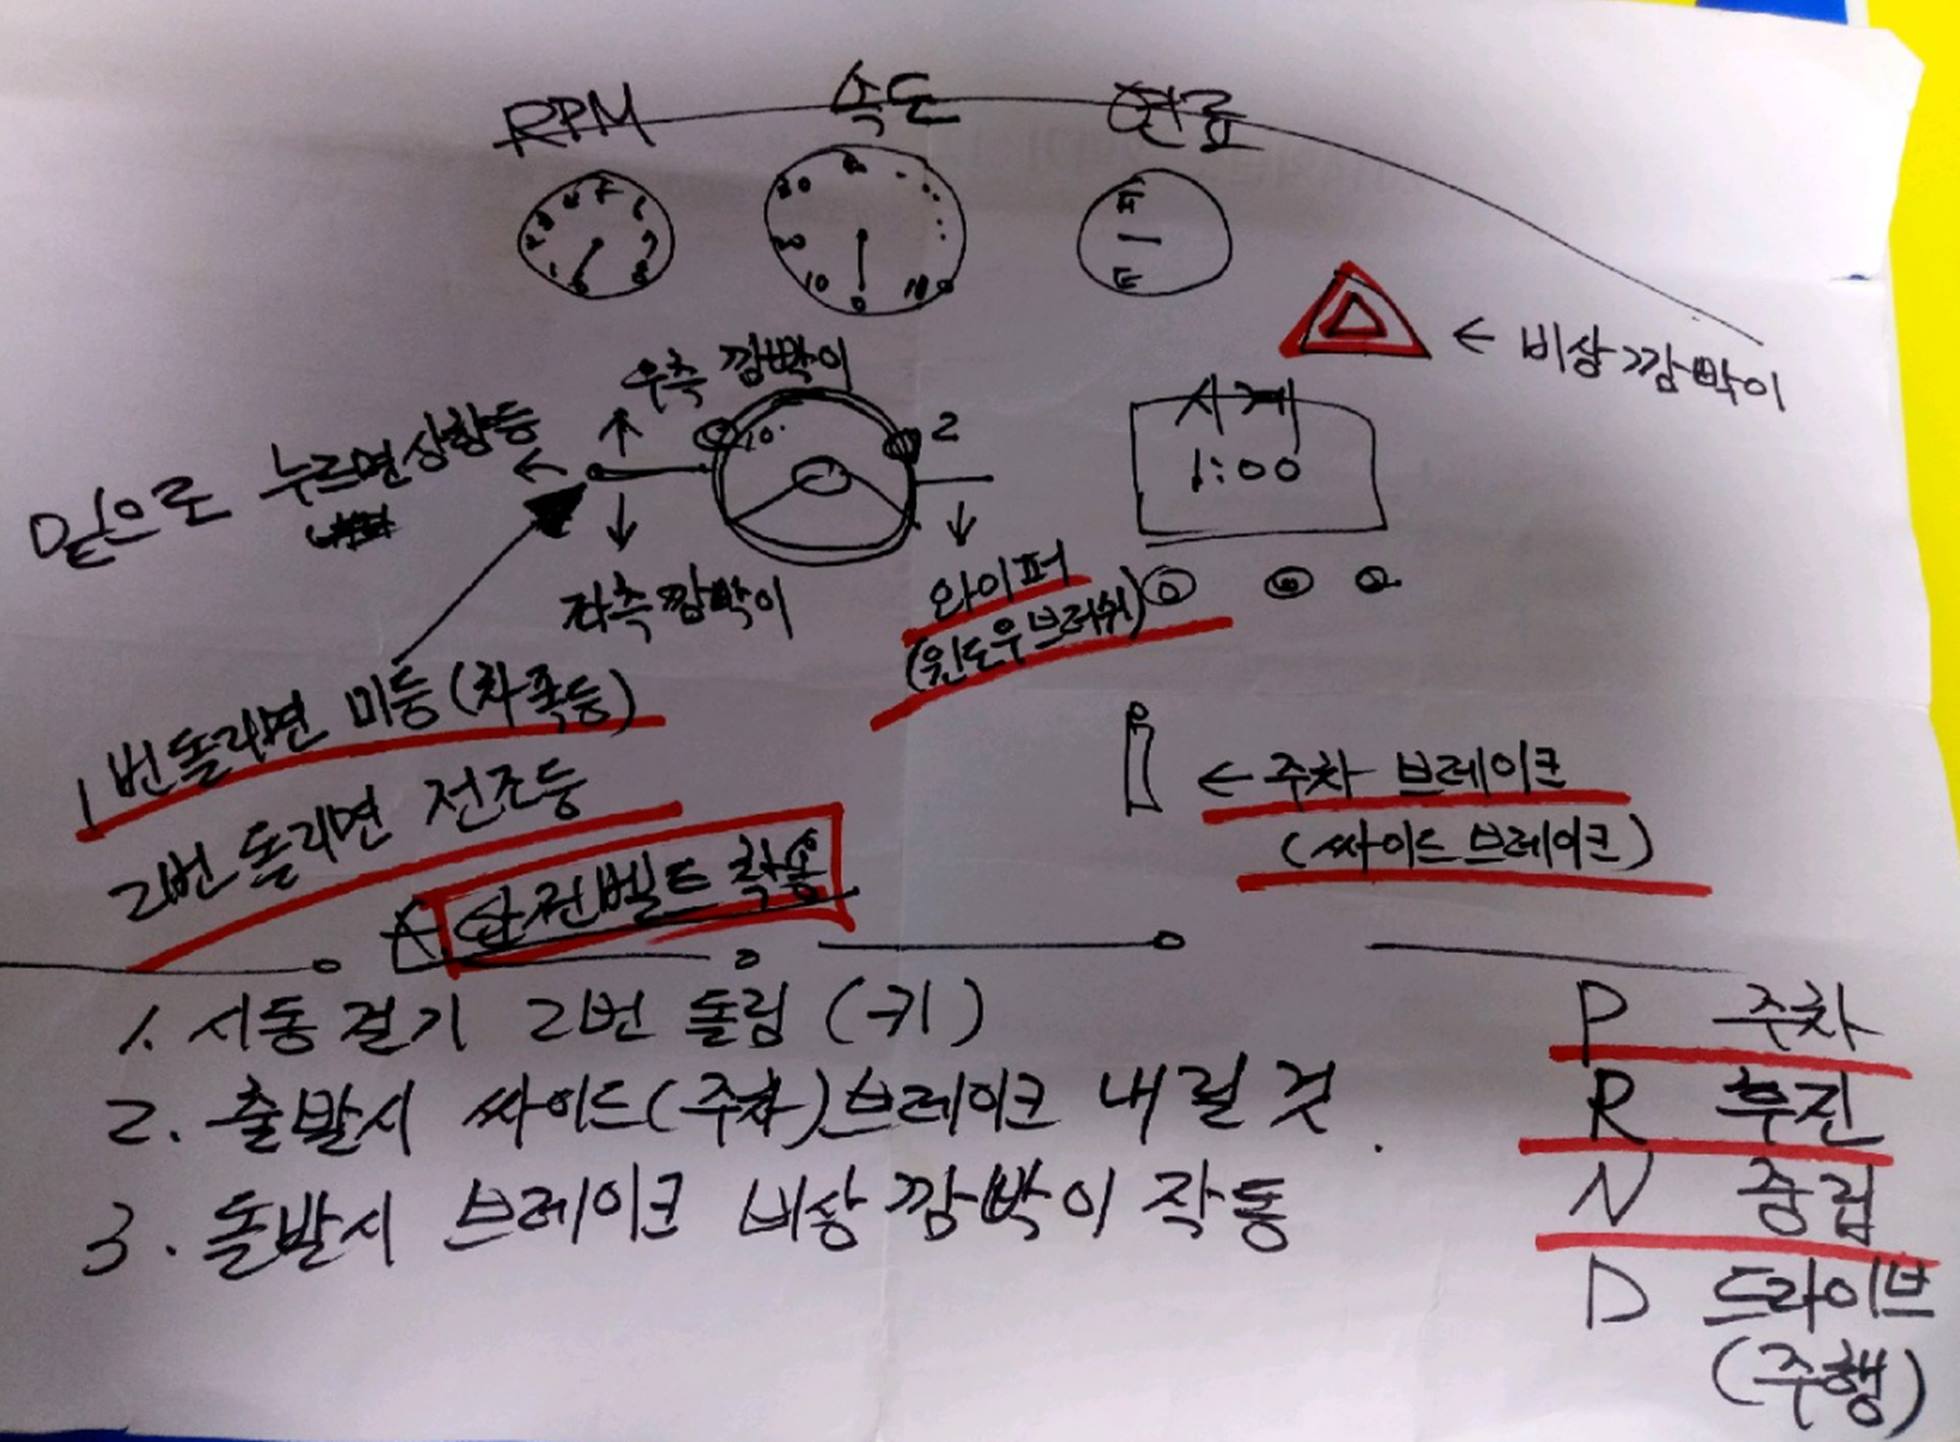 RPM 속도 연료
1 2 3 4 5 6 7 8
0 10 20 30
F
E
← 비상깜박이
우측 깜박이
밑으로 누르면 상향등
10 2
시계
1:00
좌측 깜박이
와이퍼
(윈도우브러쉬)
1번돌리면 미등(차폭등)
2번 돌리면 전조등
← 주차 브레이크
(싸이드 브레이크)
안전벨트 착용
1. 시동걸기 2번 돌림 (키)
2. 출발시 싸이드(주차)브레이크 내릴것.
3. 돌발시 브레이크 비상깜박이 작동
P 주차
R 후진
N 중립
D 드라이브
(주행)